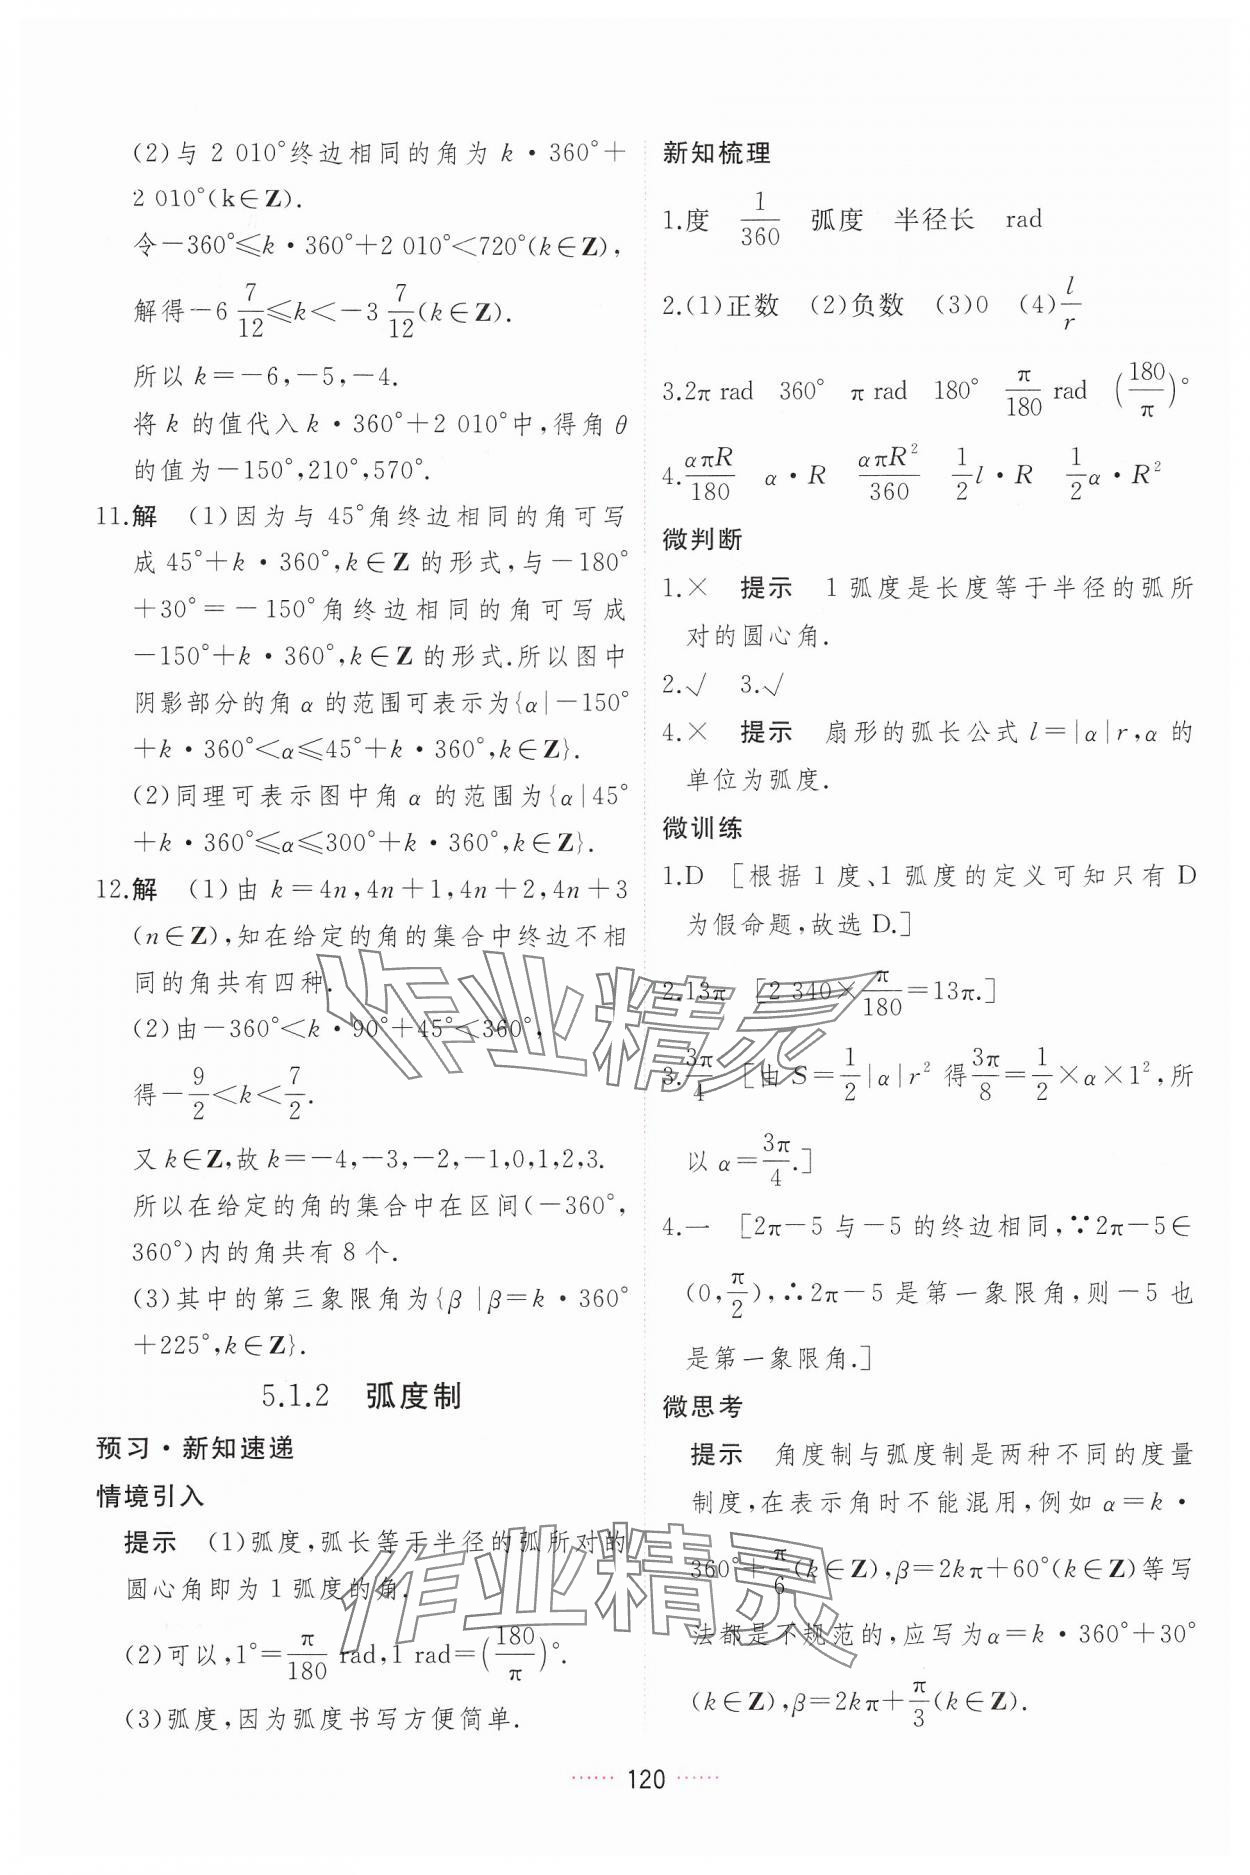 (2)与 2 010°终边相同的角为 k·360°+
2 010°(k∈Z).
令-360°≤k·360°+2 010°<720°(k∈Z),
解得-6 7/12≤k<-3 7/12(k∈Z).
所以 k=-6,-5,-4.
将 k 的值代入 k·360°+2 010°中,得角 θ
的值为-150°,210°,570°.
11.解 (1)因为与 45°角终边相同的角可写
成 45°+k·360°,k∈Z 的形式,与-180°
+30°=-150°角终边相同的角可写成
-150°+k·360°,k∈Z 的形式.所以图中
阴影部分的角 α 的范围可表示为{α|-150°
+k·360°<α≤45°+k·360°,k∈Z}.
(2)同理可表示图中角 α 的范围为{α|45°
+k·360°≤α≤300°+k·360°,k∈Z}.
12.解 (1)由 k=4n,4n+1,4n+2,4n+3
(n∈Z),知在给定的角的集合中终边不相
同的角共有四种.
(2)由-360°<k·90°+45°<360°,
得-9/2<k<7/2.
又 k∈Z,故 k=-4,-3,-2,-1,0,1,2,3.
所以在给定的角的集合中在区间(-360°,
360°)内的角共有 8 个.
(3)其中的第三象限角为{β|β=k·360°
+225°,k∈Z}.
5.1.2 弧度制
预习·新知速递
情境引入
提示 (1)弧度,弧长等于半径的弧所对的
圆心角即为 1 弧度的角.
(2)可以,1°=π/180 rad,1 rad=(180/π)°.
(3)弧度,因为弧度书写方便简单.
新知梳理
1.度 1/360 弧度 半径长 rad
2.(1)正数 (2)负数 (3)0 (4)l/r
3.2π rad 360° π rad 180° π/180 rad (180/π)°
4.απR/180 α·R απR²/360 1/2 l·R 1/2 α·R²
微判断
1.× 提示 1 弧度是长度等于半径的弧所
对的圆心角.
2.√ 3.√
4.× 提示 扇形的弧长公式 l=|α|r,α 的
单位为弧度.
微训练
1.D [根据 1 度、1 弧度的定义可知只有 D
为假命题,故选 D.]
2.13π [2 340×π/180=13π.]
3.3π/4 [由 S=1/2|α|r² 得 3π/8=1/2×α×1²,所
以 α=3π/4.]
4.一 [2π-5 与-5 的终边相同,∵2π-5∈
(0,π/2),∴2π-5 是第一象限角,则-5 也
是第一象限角.]
微思考
提示 角度制与弧度制是两种不同的度量
制度,在表示角时不能混用,例如 α=k·
360°+π/6(k∈Z),β=2kπ+60°(k∈Z)等写
法都是不规范的,应写为α=k·360°+30°
(k∈Z),β=2kπ+π/3(k∈Z).
······ 120 ······
作业精灵
作业精灵